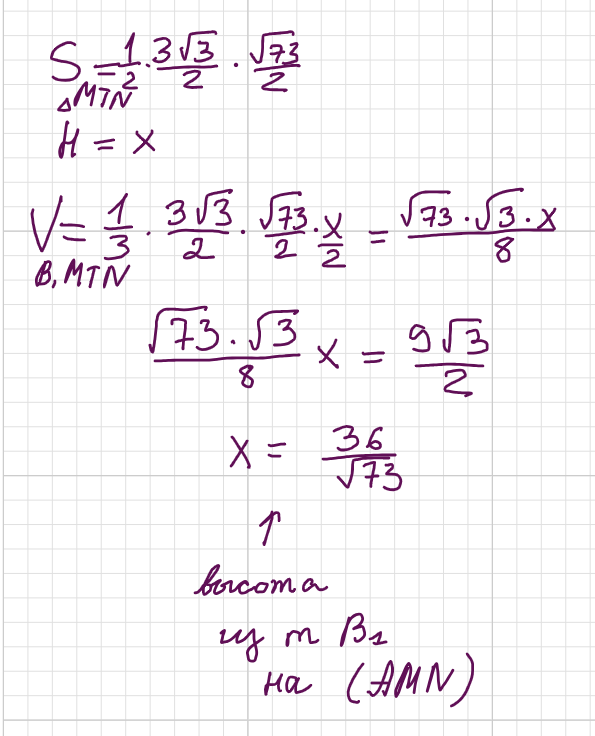 S △MTN = 1/2 · 3√3/2 · √73/2
H = x
V B₁MTN = 1/3 · 3√3/2 · √73/2 · x/2 = √73 · √3 · x/8
√73 · √3/8 x = 9√3/2
x = 36/√73
↑
высота
из т B₁
на (AMN)